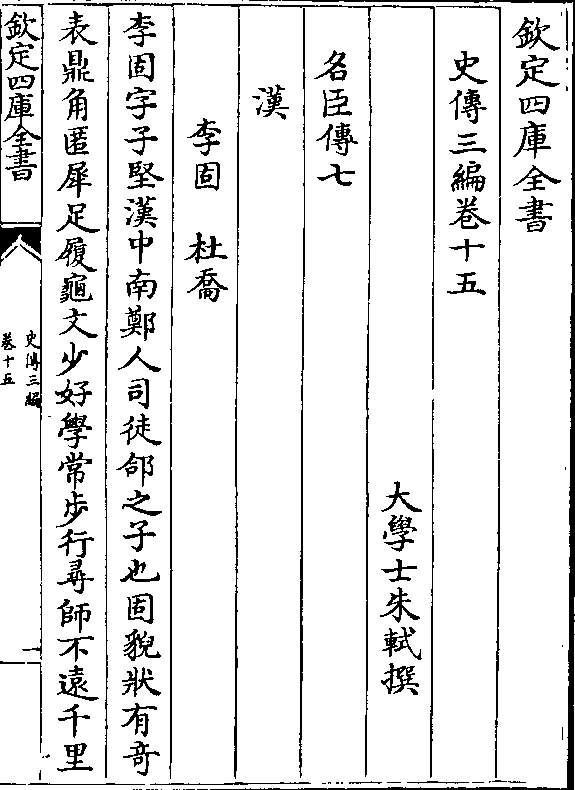 欽定四庫全書
史傳三編卷十五
大學士朱軾撰
名臣傳七
漢
李固　杜喬
李固字子堅漢中南鄭人司徒郃之子也固貌狀有竒
表鼎角匿犀足履龜文少好學常步行尋師不遠千里
欽定四庫全書
史傳三編
卷十五
一